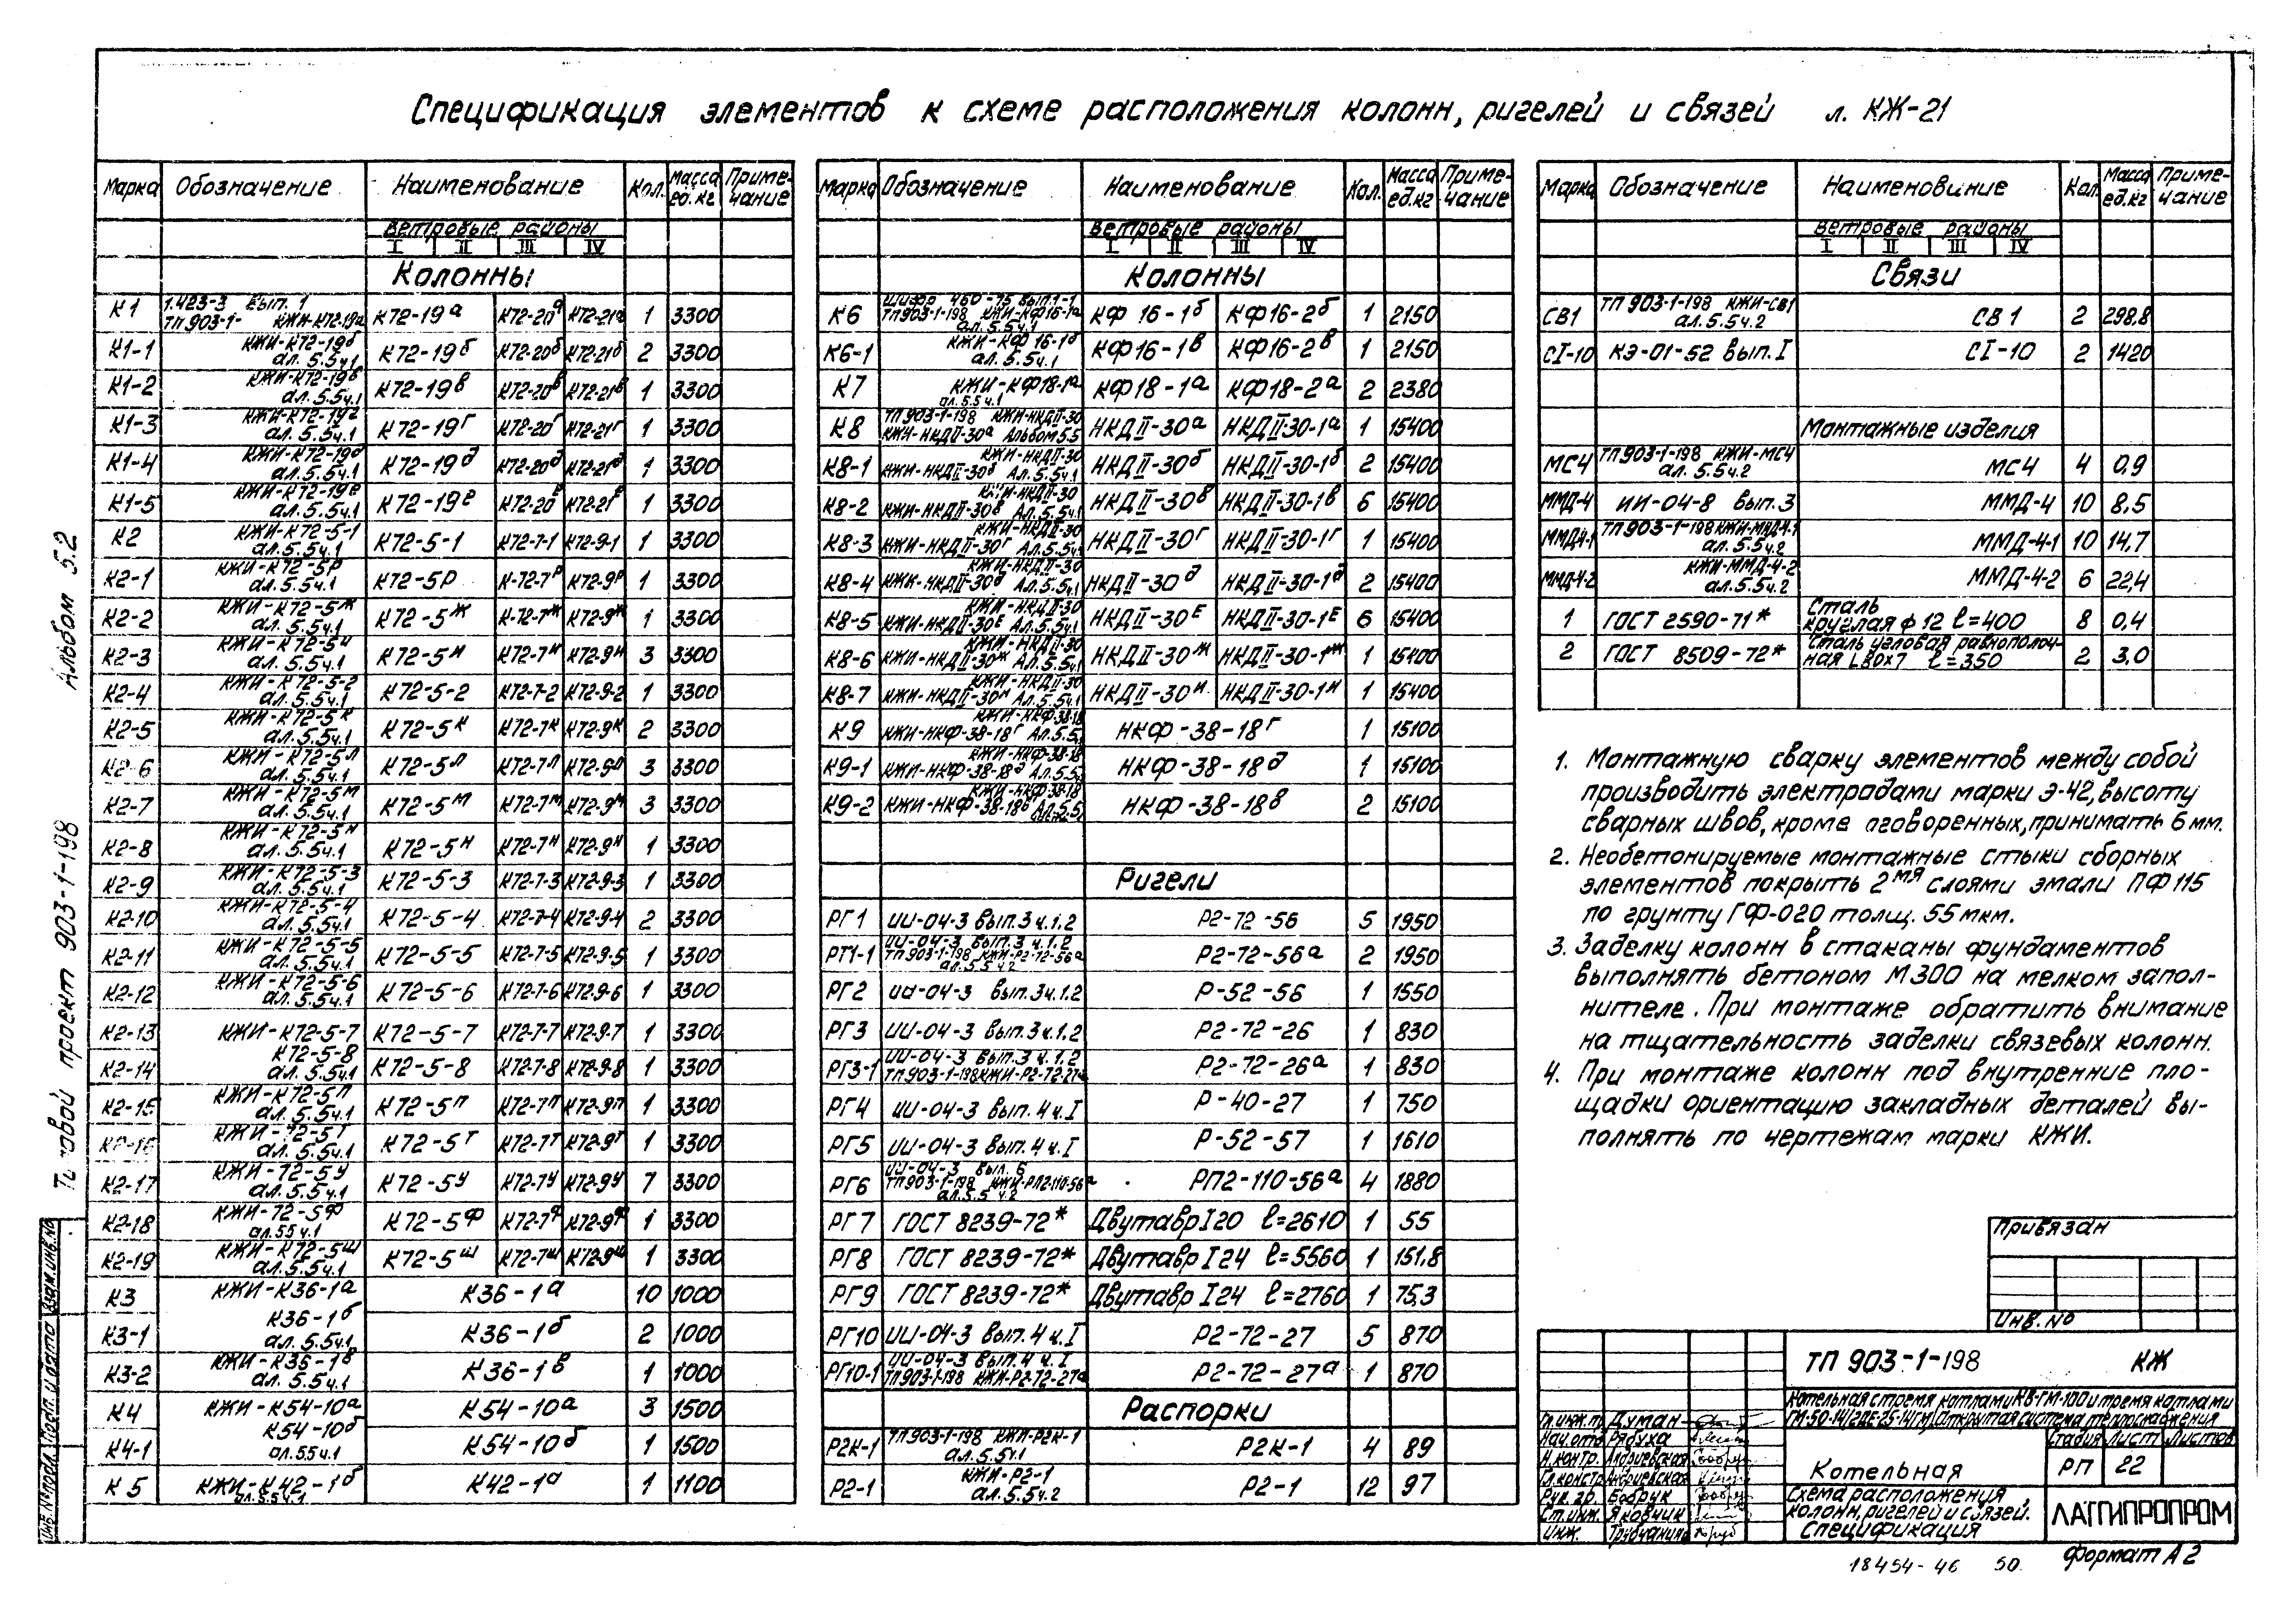 Спецификация элементов к схеме расположения колонн, ригелей и связей л. КЖ-21
Марка Обозначение Наименование Кол. Масса ед.кг Примечание
Ветровые районы
I II III IV
Колонны
К1 1.423-3 вып. 1 ТП903-1- КЖИ-К72-19а К72-19а К72-20а К72-21а 1 3300
К1-1 КЖИ-К72-19б ал.5.5ч.1 К72-19б К72-20б К72-21б 2 3300
К1-2 КЖИ-К72-19в ал.5.5ч.1 К72-19в К72-20в К72-21в 1 3300
К1-3 КЖИ-К72-19г ал.5.5ч.1 К72-19г К72-20г К72-21г 1 3300
К1-4 КЖИ-К72-19д ал.5.5ч.1 К72-19д К72-20д К72-21д 1 3300
К1-5 КЖИ-К72-19е ал.5.5ч.1 К72-19е К72-20е К72-21е 1 3300
К2 КЖИ-К72-5-1 ал.5.5ч.1 К72-5-1 К72-7-1 К72-9-1 1 3300
К2-1 КЖИ-К72-5р ал.5.5ч.1 К72-5р К-72-7р К72-9р 1 3300
К2-2 КЖИ-К72-5ж ал.5.5ч.1 К72-5ж К-72-7ж К72-9ж 1 3300
К2-3 КЖИ-К72-5и ал.5.5ч.1 К72-5и К72-7и К72-9и 3 3300
К2-4 КЖИ-К72-5-2 ал.5.5ч.1 К72-5-2 К72-7-2 К72-9-2 1 3300
К2-5 КЖИ-К72-5к ал.5.5ч.1 К72-5к К72-7к К72-9к 2 3300
К2-6 КЖИ-К72-5л ал.5.5ч.1 К72-5л К72-7л К72-9л 3 3300
К2-7 КЖИ-К72-5м ал.5.5ч.1 К72-5м К72-7м К72-9м 3 3300
К2-8 КЖИ-К72-5н ал.5.5ч.1 К72-5н К72-7н К72-9н 1 3300
К2-9 КЖИ-К72-5-3 ал.5.5ч.1 К72-5-3 К72-7-3 К72-9-3 1 3300
К2-10 КЖИ-К72-5-4 ал.5.5ч.1 К72-5-4 К72-7-4 К72-9-4 2 3300
К2-11 КЖИ-К72-5-5 ал.5.5ч.1 К72-5-5 К72-7-5 К72-9-5 1 3300
К2-12 КЖИ-К72-5-6 ал.5.5ч.1 К72-5-6 К72-7-6 К72-9-6 1 3300
К2-13 КЖИ-К72-5-7 К72-5-7 К72-7-7 К72-9-7 1 3300
К2-14 К72-5-8 ал.5.5ч.1 К72-5-8 К72-7-8 К72-9-8 1 3300
К2-15 КЖИ-К72-5п ал.5.5ч.1 К72-5п К72-7п К72-9п 1 3300
К2-16 КЖИ-72-5т ал.5.5ч.1 К72-5т К72-7т К72-9т 1 3300
К2-17 КЖИ-72-5у ал.5.5ч.1 К72-5у К72-7у К72-9у 7 3300
К2-18 КЖИ-72-5ф ал.55ч.1 К72-5ф К72-7ф К72-9ф 1 3300
К2-19 КЖИ-К72-5ш ал.5.5ч.1 К72-5ш К72-7ш К72-9ш 1 3300
К3 КЖИ-К36-1а К36-1а 10 1000
К3-1 К36-1б ал.5.5ч.1 К36-1б 2 1000
К3-2 КЖИ-К36-1в ал.5.5ч.1 К36-1в 1 1000
К4 КЖИ-К54-10а К54-10а 3 1500
К4-1 К54-10б ал.55ч.1 К54-10б 1 1500
К5 КЖИ-К42-1б ал.5.5ч.1 К42-1а 1 1100
Марка Обозначение Наименование Кол. Масса ед.кг Примечание
Ветровые районы
I II III IV
Колонны
К6 Шифр 460-75 вып.1-1 ТП903-1-198 КЖИ-КФ16-1а ал.5.5ч.1 КФ 16-1б КФ16-2б 1 2150
К6-1 КЖИ-КФ16-1б ал.5.5ч.1 КФ16-1в КФ16-2в 1 2150
К7 КЖИ-КФ18-1а ал.5.5ч.1 КФ18-1а КФ18-2а 2 2380
К8 ТП903-1-198 КЖИ-НКДII-30 КЖИ-НКДII-30а Альбом5.5 НКДII-30а НКДII-30-1а 1 15400
К8-1 КЖИ-НКДII-30 КЖИ-НКДII-30б Ал.5.5ч.1 НКДII-30б НКДII-30-1б 2 15400
К8-2 КЖИ-НКДII-30 КЖИ-НКДII-30в Ал.5.5ч.1 НКДII-30в НКДII-30-1в 6 15400
К8-3 КЖИ-НКДII-30 КЖИ-НКДII-30г Ал.5.5ч.1 НКДII-30г НКДII-30-1г 1 15400
К8-4 КЖИ-НКДII-30 КЖИ-НКДII-30д Ал.5.5ч.1 НКДII-30д НКДII-30-1д 2 15400
К8-5 КЖИ-НКДII-30 КЖИ-НКДII-30Е Ал.5.5ч.1 НКДII-30Е НКДII-30-1Е 6 15400
К8-6 КЖИ-НКДII-30 КЖИ-НКДII-30ж Ал.5.5ч.1 НКДII-30ж НКДII-30-1ж 1 15400
К8-7 КЖИ-НКДII-30 КЖИ-НКДII-30и Ал.5.5ч.1 НКДII-30и НКДII-30-1и 1 15400
К9 КЖИ-НКФ-38-18 КЖИ-НКФ-38-18г Ал.5.5 НКФ-38-18г 1 15100
К9-1 КЖИ-НКФ-38-18 КЖИ-НКФ-38-18д Ал.5.5 НКФ-38-18д 1 15100
К9-2 КЖИ-НКФ-38-18 КЖИ-НКФ-38-18в Ал.5.5 НКФ-38-18в 2 15100
Ригели
РГ1 ИИ-04-3 вып.3ч.1.2 Р2-72-56 5 1950
РГ1-1 ИИ-04-3 вып.3 ч.1.2 ТП903-1-198 КЖИ-Р2-72-56а ал.5.5ч.2 Р2-72-56а 2 1950
РГ2 ИИ-04-3 вып.3ч.1.2 Р-52-56 1 1550
РГ3 ИИ-04-3 вып.3ч.1.2 Р2-72-26 1 830
РГ3-1 ИИ-04-3 вып.3 ч.1.2 ТП903-1-198КЖИ-Р2-72-27а Р2-72-26а 1 830
РГ4 ИИ-04-3 вып.4ч.I Р-40-27 1 750
РГ5 ИИ-04-3 вып.4ч.I Р-52-57 1 1610
РГ6 ИИ-04-3 вып. 6 ТП903-1-198 КЖИ-РП2-110-56а ал.5.5ч.2 РП2-110-56а 4 1880
РГ7 ГОСТ 8239-72* Двутавр I20 ℓ=2610 1 55
РГ8 ГОСТ 8239-72* Двутавр I24 ℓ=5560 1 151,8
РГ9 ГОСТ 8239-72* Двутавр I24 ℓ=2760 1 75,3
РГ10 ИИ-04-3 вып.4ч.I Р2-72-27 5 870
РГ10-1 ИИ-04-3 вып.4 ч.I ТП903-1-198 КЖИ-Р2-72-27а Р2-72-27а 1 870
Распорки
Р2К-1 ТП903-1-198 КЖИ-Р2К-1 ал.5.5ч.1 Р2К-1 4 89
Р2-1 КЖИ-Р2-1 ал.5.5ч.2 Р2-1 12 97
Марка Обозначение Наименование Кол. Масса ед.кг Примечание
Ветровые районы
I II III IV
Связи
СВ1 ТП903-1-198 КЖИ-СВ1 ал.5.5ч.2 СВ1 2 298,8
СI-10 КЭ-01-52 вып.I СI-10 2 1420
Монтажные изделия
МС4 ТП903-1-198 КЖИ-МС4 ал.5.5ч.2 МС4 4 0,9
ММД-4 ИИ-04-8 вып.3 ММД-4 10 8,5
ММД-4-1 ТП903-1-198КЖИ-ММД-4-1 ал.5.5ч.2 ММД-4-1 10 14,7
ММД-4-2 КЖИ-ММД-4-2 ал.5.5ч.2 ММД-4-2 6 22,4
1 ГОСТ 2590-71* Сталь круглая ϕ12 ℓ=400 8 0,4
2 ГОСТ 8509-72* Сталь угловая равнополочная L80х7 ℓ=350 2 3,0
1. Монтажную сварку элементов между собой
производить электродами марки Э-42, высоту
сварных швов, кроме оговоренных, принимать 6мм.
2. Необетонируемые монтажные стыки сборных
элементов покрыть 2мя слоями эмали ПФ115
по грунту ГФ-020 толщ. 55мкм.
3. Заделку колонн в стаканы фундаментов
выполнять бетоном М300 на мелком запол-
нителе. При монтаже обратить внимание
на тщательность заделки связевых колонн.
4. При монтаже колонн под внутренние пло-
щадки ориентацию закладных деталей вы-
полнять по чертежам марки КЖИ.
Привязан
Инв. №
ТП 903-1-198 КЖ
Котельная с тремя котлами КВ-ГМ-100 и тремя котлами
ГМ-50-14/2ДЕ-25-14ГМ/. Открытая система теплоснабжения
Гл.инж.п. Думан
Нач.отд. Рябуха
Н.контр. Андриевская
Гл.констр. Андриевская
Рук.гр. Бобрук
Ст.инж. Яковчик
Инж.
Котельная
Стадия Лист Листов
РП 22
Схема расположения
колонн, ригелей и связей.
Спецификация
ЛАТГИПРОПРОМ
18454-46 50
Формат А2
Альбом 5.2
Типовой проект 903-1-198
Инв.№подл. Подп. и дата Взам.инв.№